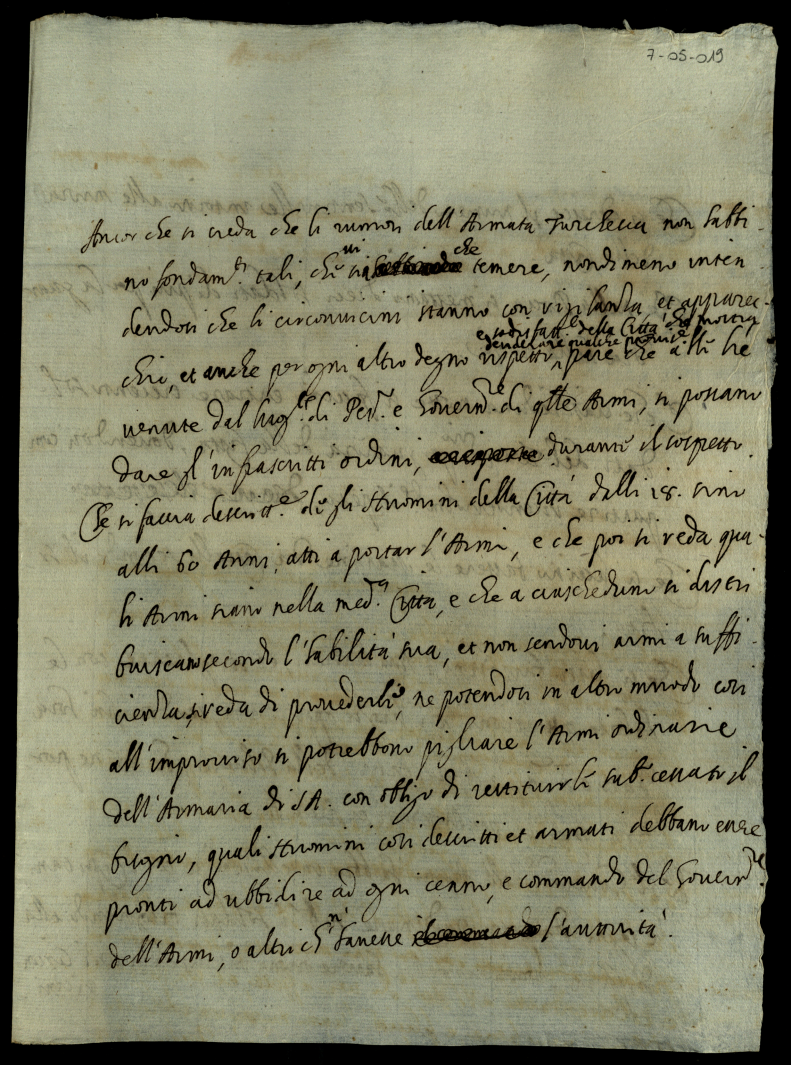 7-05-019
Ancor che si creda che li rumori dell'Armata Turchesca non habbi-
no fondam.to tali, che vi sia che temere, nondimeno inten
dendosi che li circonvicini stanno con vigilanza et apparec-
e sodisfatt.e della Città che mostra
desiderare qualche
chio, et anche per ogni altro degno rispetto, pare che alli
venute dal di e Govern.re di q.lle Armi, si possano
dare gl'infrascritti ordini, durante il sospetto.
Che si faccia descritt.e de gli Huomini della Città dalli 18. sino
alli 60 Anni, atti a portar l'Armi, e che poi si veda qua-
li Armi siano nella med.a Città, e che a ciascheduno si distri
buiscano secondo l'habilità sua, et non sendovi armi a suffi-
cienza, si veda di provederle, ne potendosi in altro modo così
all'improviso si potrebbono pigliare l'Armi ordinarie
dell'Armaria di S.A. con obligo di restituirle sub.o cessato il
bisogno, quali Huomini così descritti et armati debbano essere
pronti ad ubbidire ad ogni cenno, e commando del Govern.re
dell'Armi, o altri ch'n'havesse l'autorità.